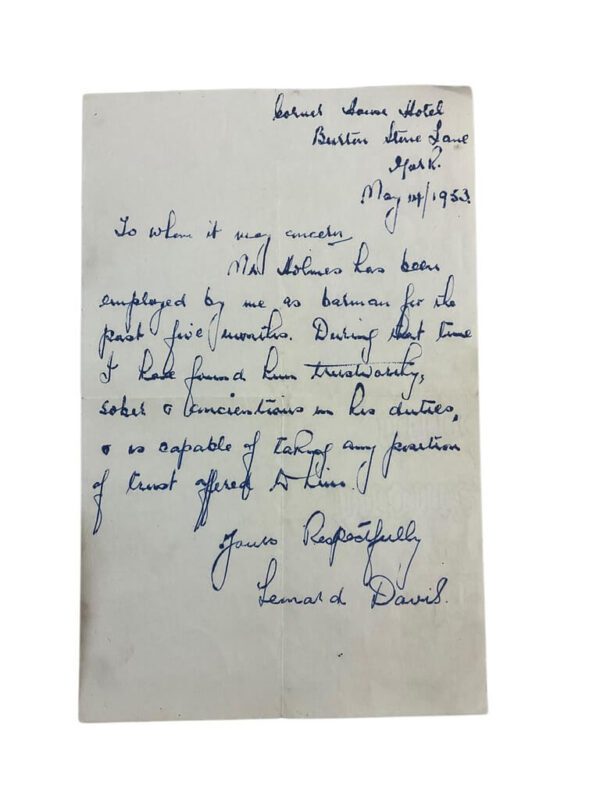 Corner House Hotel
Burton Stone Lane
York.
May 14/1953.
To whom it may concern
Mr Holmes has been
employed by me as barman for the
past five months. During that time
I have found him trustworthy,
sober & concientious in his duties,
& is capable of taking any position
of trust offered to him.
Yours Respectfully
Lenard Davis.